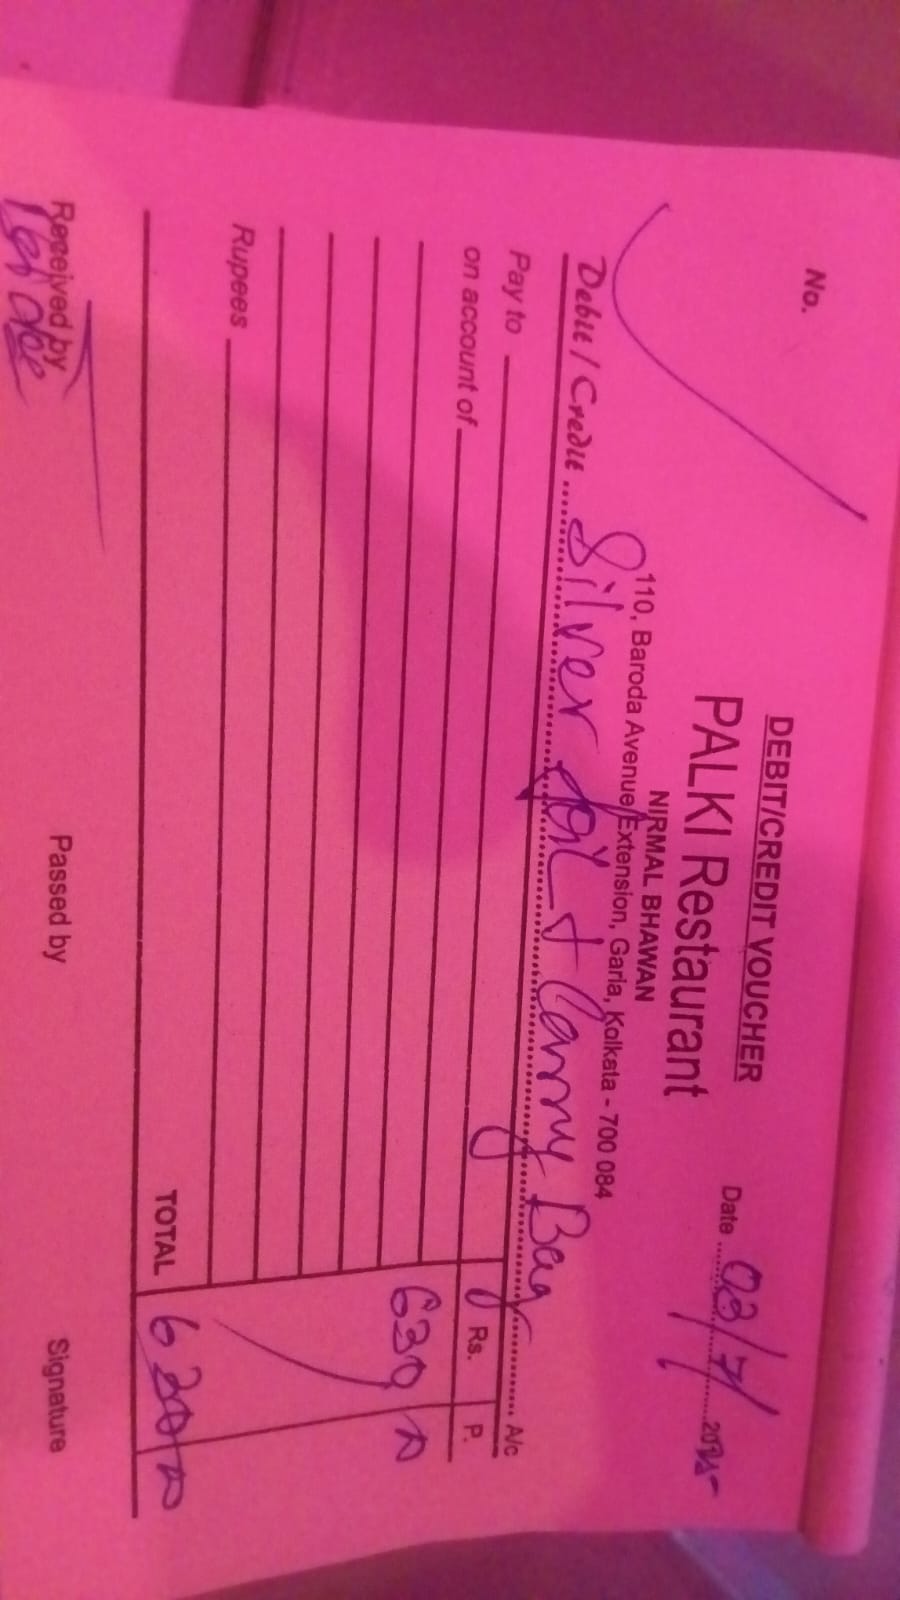 DEBIT/CREDIT VOUCHER
No.
PALKI Restaurant
Date 03/7/2025
NIRMAL BHAWAN
110, Baroda Avenue Extension, Garia, Kolkata - 700 084
Debit / Credit ..... Silver foil + Carry Bag ..... A/c
Rs. P.
Pay to
on account of
630
Rupees
TOTAL 630
Received by
Passed by
Signature